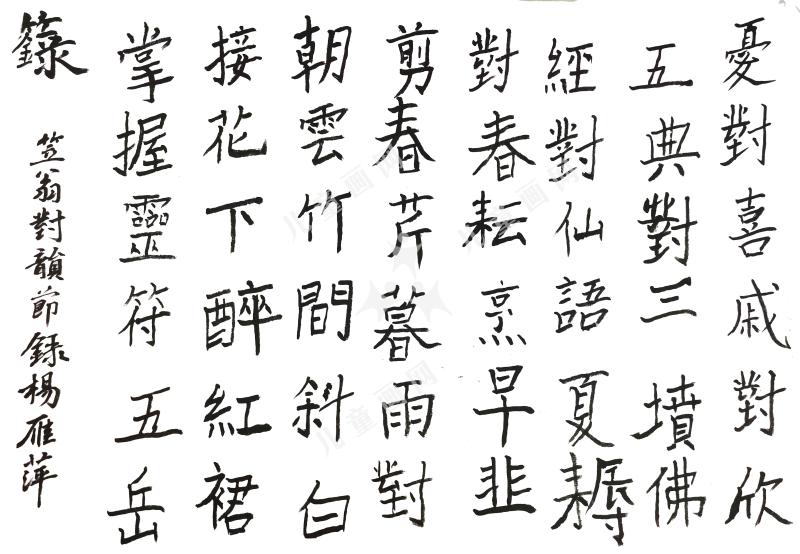 憂對喜戚對欣
五典對三墳佛
經對仙語夏耨
對春耘烹早韭
剪春芹暮雨對
朝雲竹間斜白
接花下醉紅裙
掌握靈符五岳
籙
笠翁對韻節錄楊雁萍
儿童画网
儿童画网